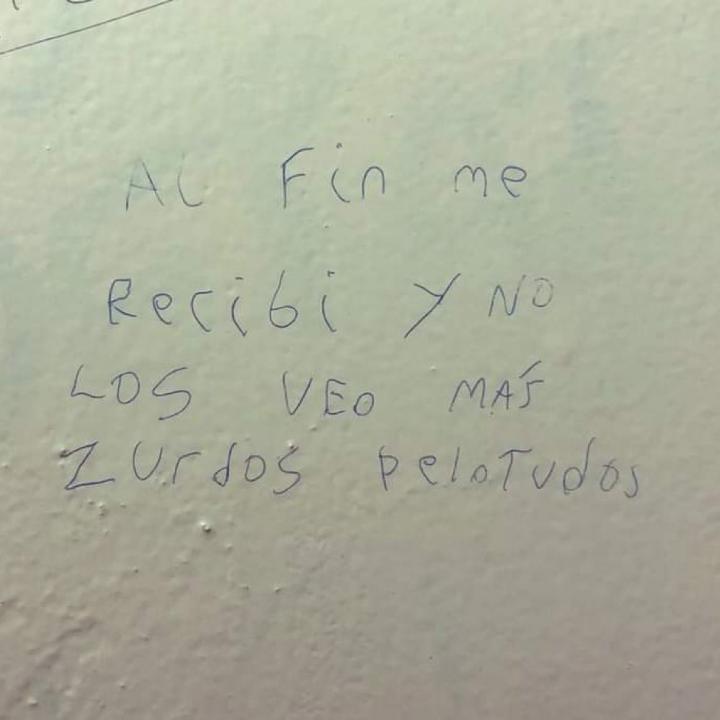 Al Fin me
Recibi y NO
LOS VEO MÁS
ZUrdos peloTudos